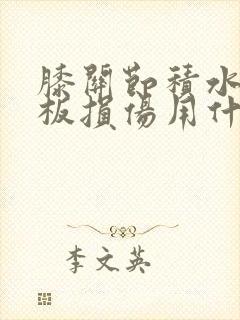 膝關節積水
板損傷用什
李文英